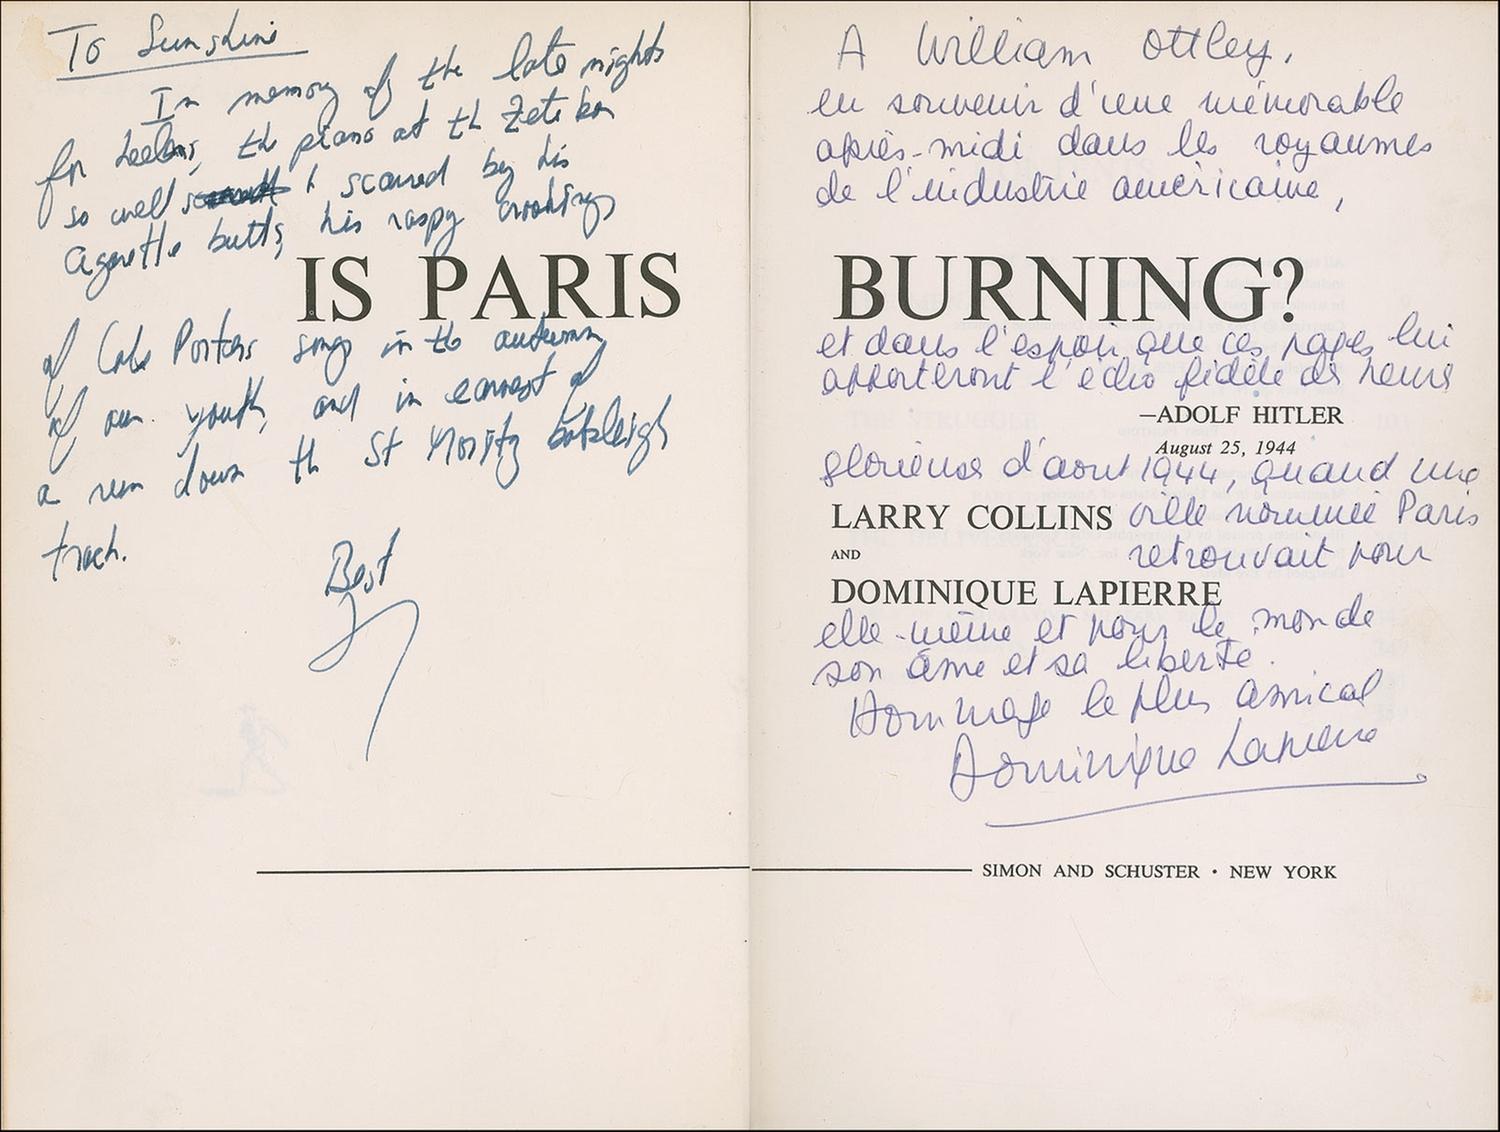 To Sunshine
In memory of the late nights
for the piano at the Zete bar
so well scarred by his
cigarette butts, his raspy
IS PARIS
of Cole Porters songs in the autumn
of our youth, and in earnest of
a run down the St Moritz bobsleigh
track.
Best
A William Ottley,
en souvenir d'une mémorable
après-midi dans les royaumes
de l'industrie américaine,
BURNING?
et dans l'espoir que ces pages lui
apporteront l'écho fidèle des heures
—ADOLF HITLER
August 25, 1944
glorieuses d'aout 1944, quand une
LARRY COLLINS ville nommée Paris
AND retrouvait pour
DOMINIQUE LAPIERRE
elle-même et pour le monde
son âme et sa liberté.
Hommage le plus amical
Dominique Lapierre
SIMON AND SCHUSTER • NEW YORK